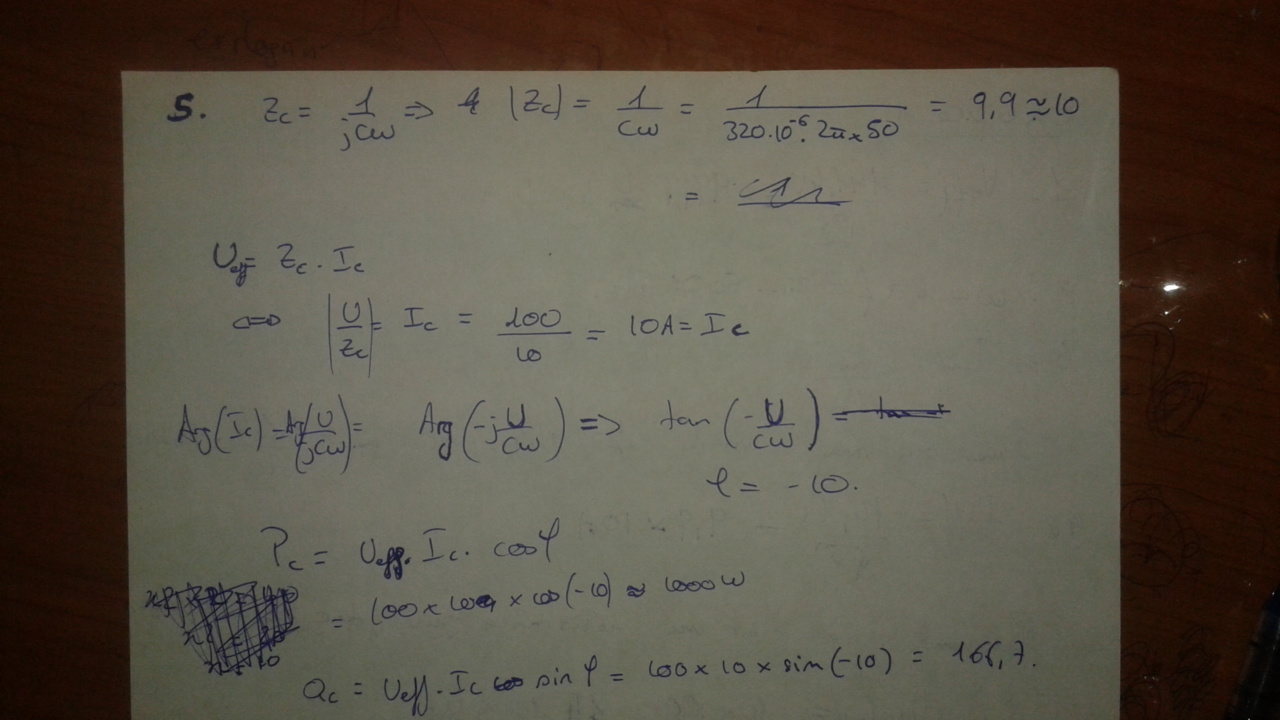 5. Zc = 1/jCω => |Zc| = 1/Cω = 1/320.10^-6.2π×50 = 9,9 ≈ 10
=
Ueff = Zc . Ic
<=> |U/Zc| = Ic = 100/10 = 10A = Ic
Arg(Ic) = Arg(U/jCω) = Arg(-jU/Cω) => tan(-U/Cω) =
φ = -10.
Pc = Ueff. Ic. cosφ
= 100 × 10 × cos(-10) ≈ 1000 W
Qc = Ueff. Ic sinφ = 100×10×sin(-10) = 166,7.